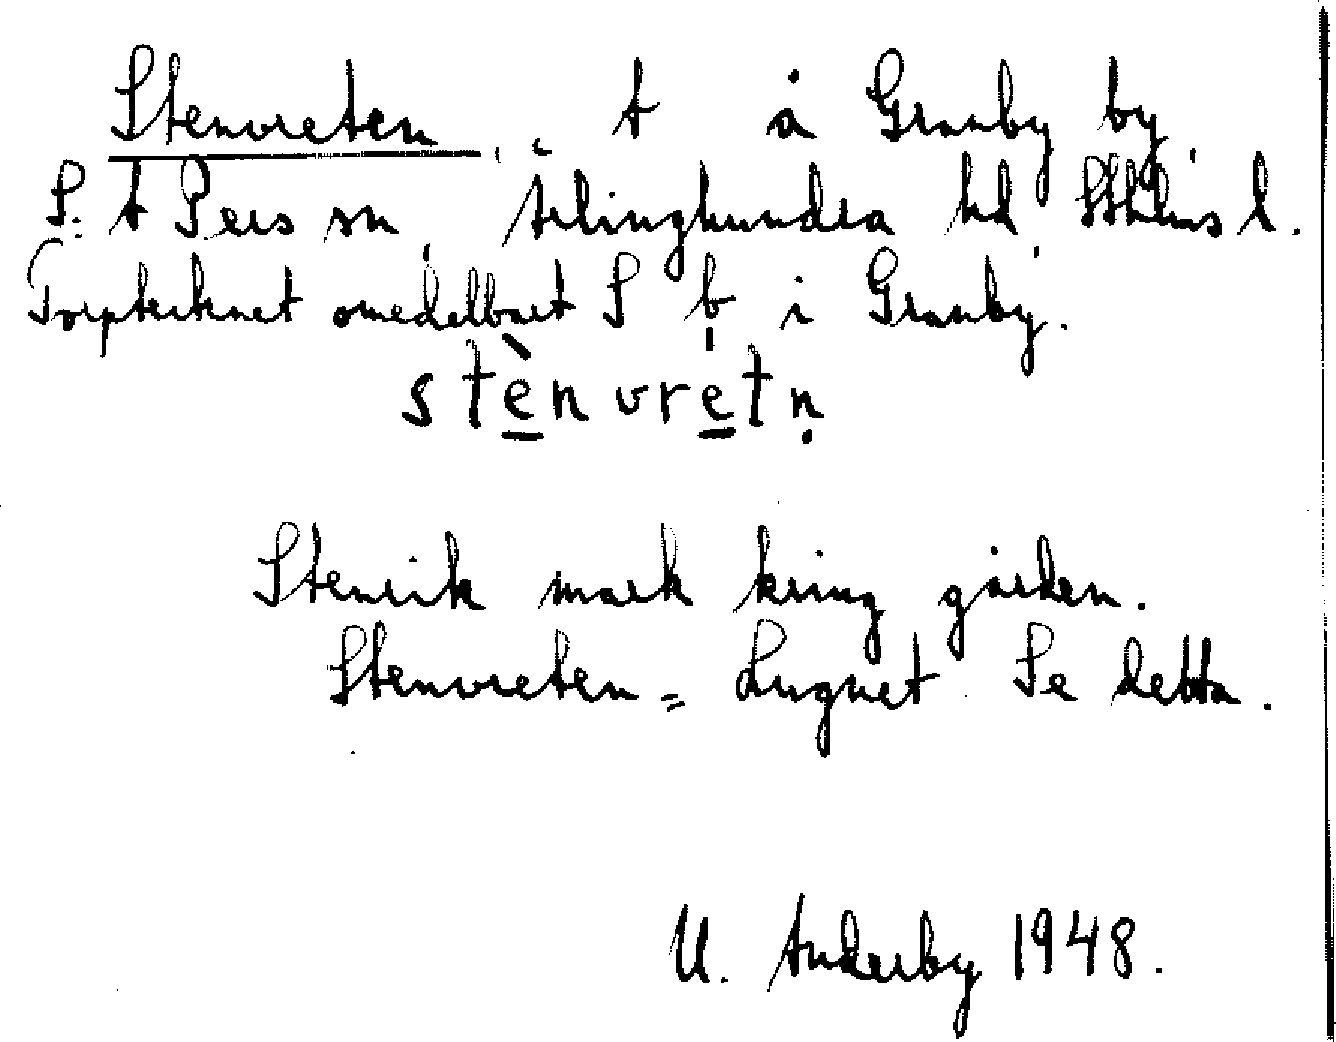 Stenvreten, t å Granby by,
S:t Pers sn, Ärlinghundra hd Sthlms l.
Torptecknet omedelbart S b i Granby.
stènvre̱tṇ
Stenrik mark kring gården.
Stenvreten = Lugnet. Se detta.
U. Anderby 1948.